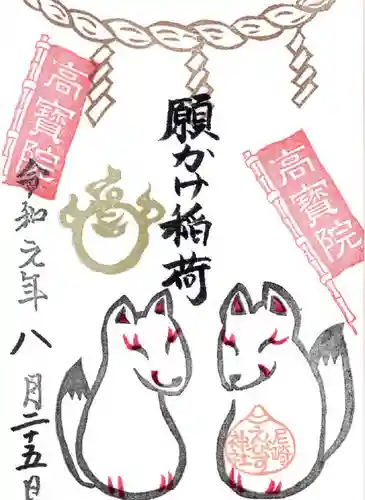 高寶院
願かけ稲荷
高寶院
令和元年八月二十五日
尼崎
えびす
神社